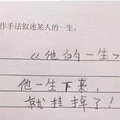 作手法叙述某人的一生。
《他的一生》
他一生下来，
就挂掉了！